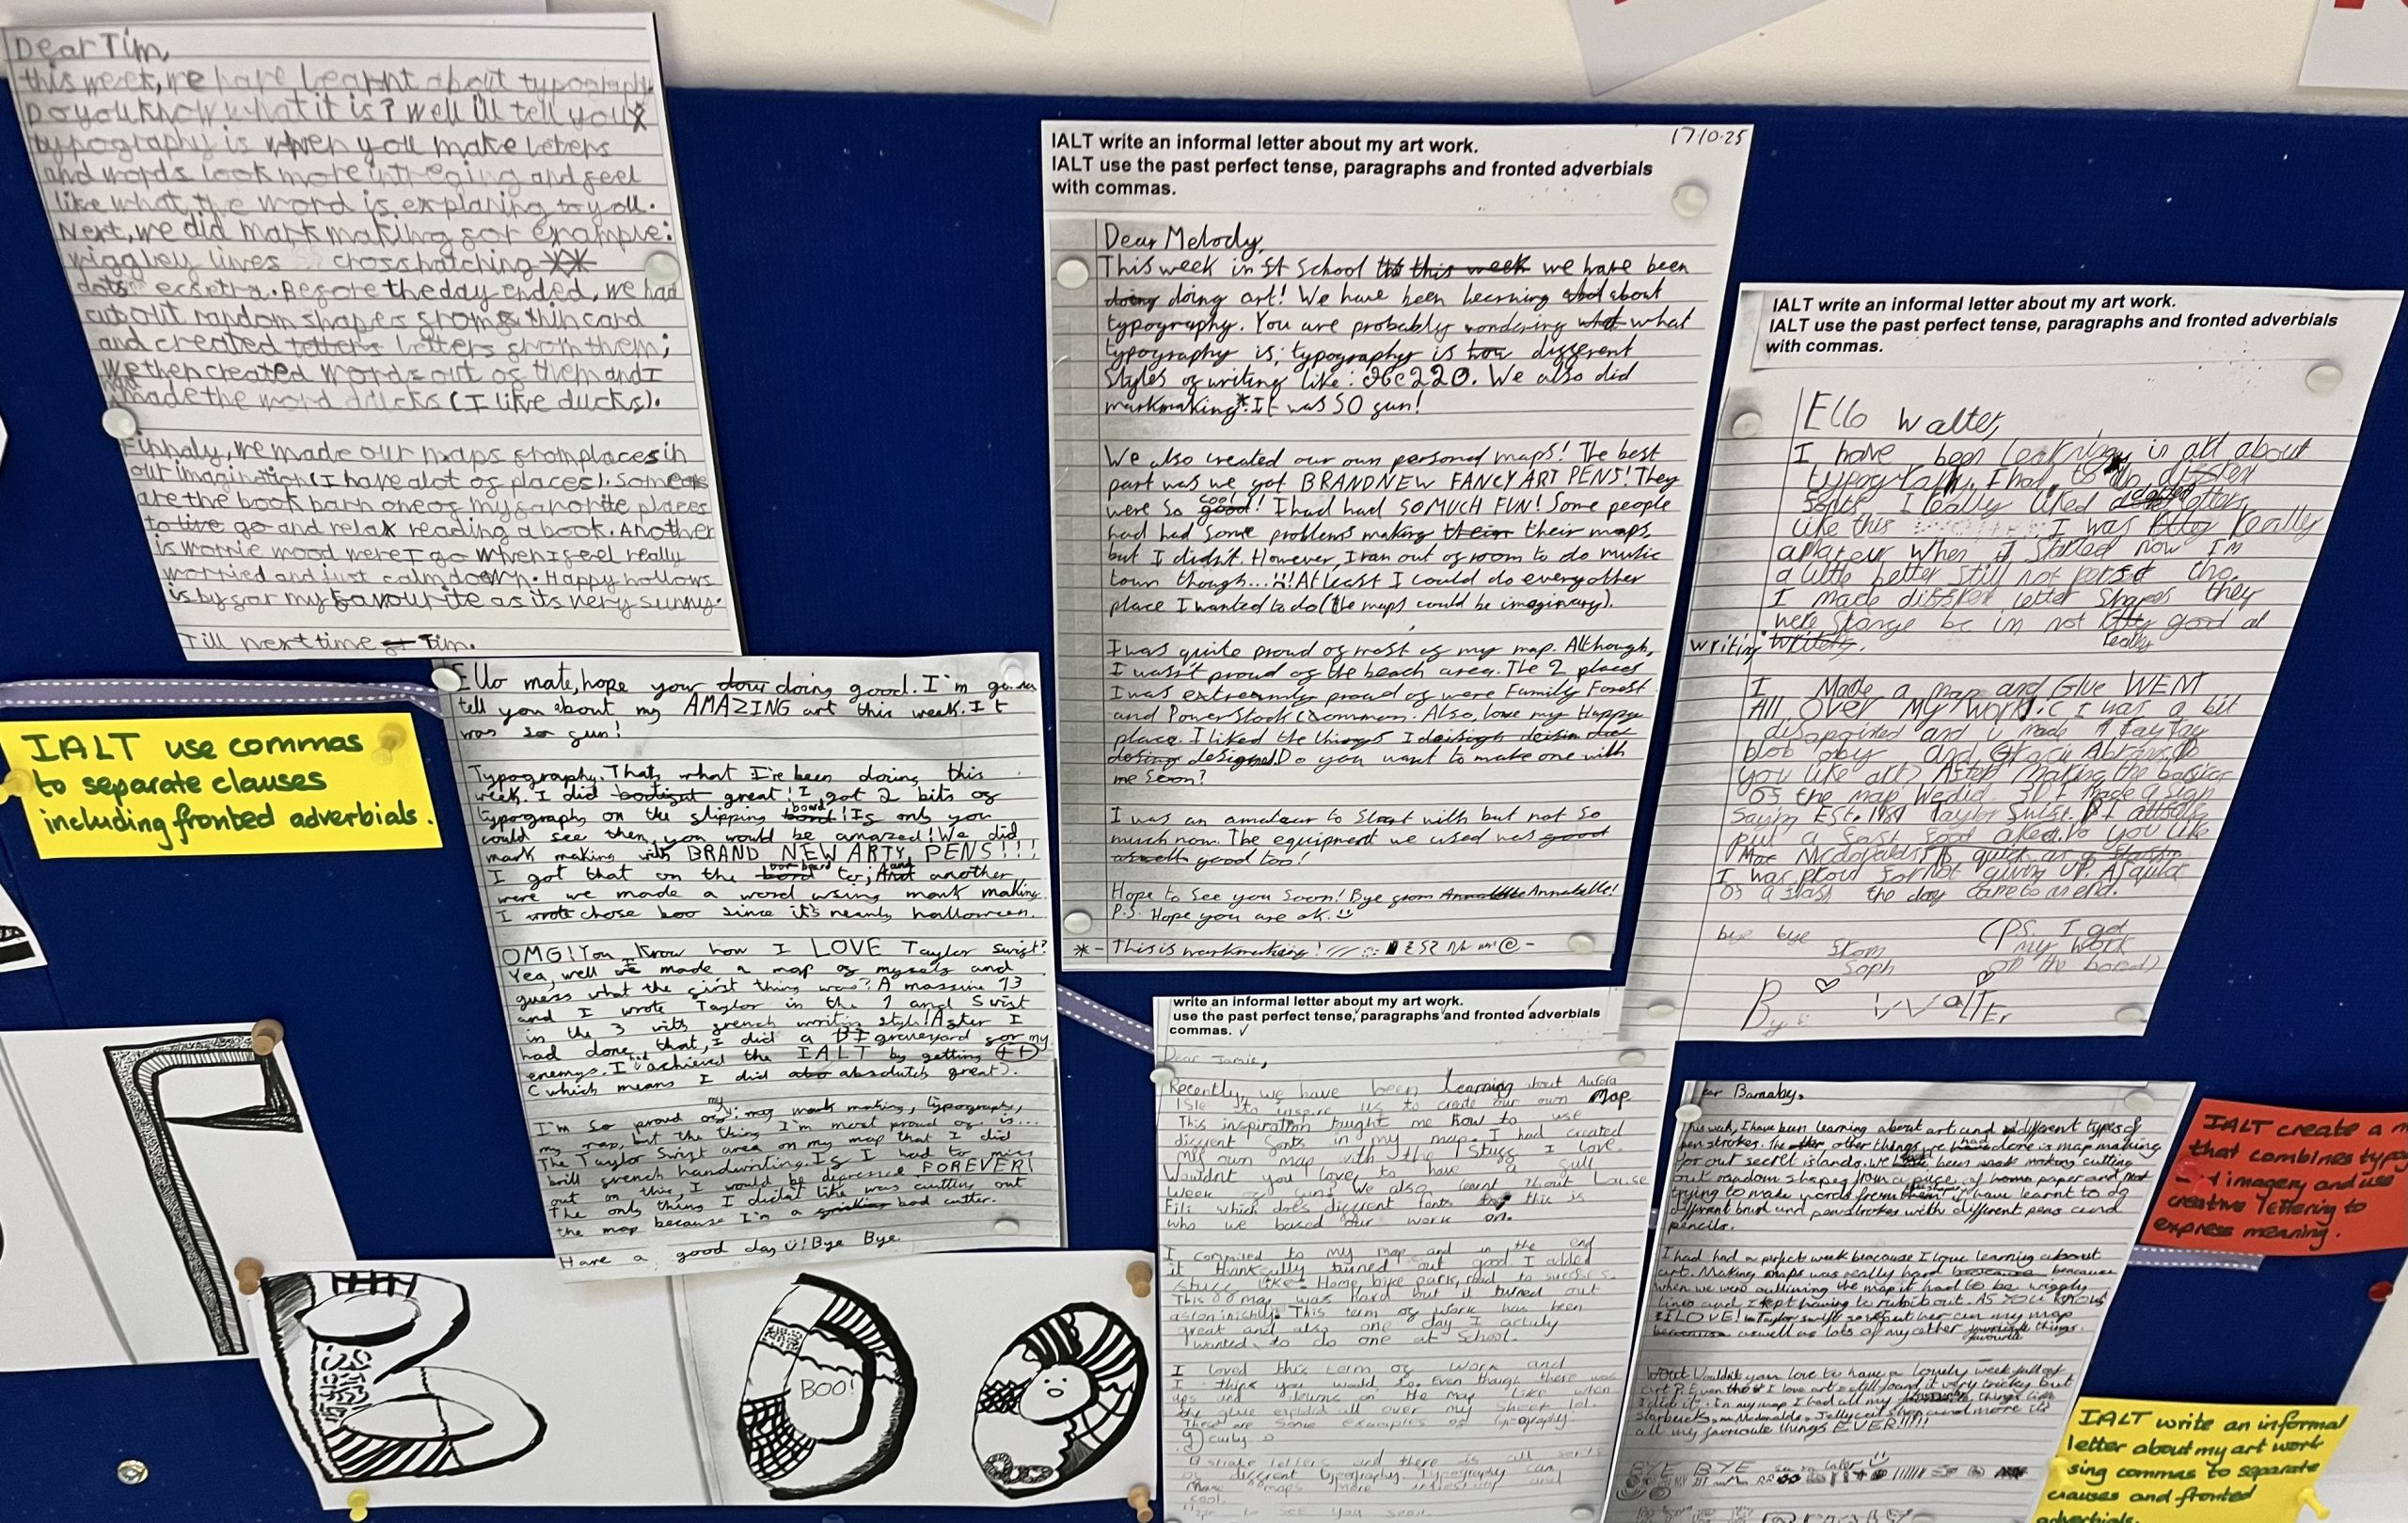 Dear Tim,
this week, we have learnt about typography.
Do you know what it is? well ill tell you
typography is when you make leters
and words look more intreging and feel
like what the word is explaring to you.
Next, we did mark making for example:
wiggley lines crosshatching
dots ecsetra. Before the day ended, we had
cut out random shapes from thin card
and created letters letters from them;
we then created words out of them and I
had made the word ducks (I like ducks).
Finhaly, we made our maps from places in
our imagination (I have alot of places). Some
are the book barn one of my favorite places
to live go and relax reading a book. Another
is worrie mood were I go when I feel really
worried and just calm down. Happy hollows
is by far my favourite as its very sunny.
Till next time Tim.
IALT use commas
to separate clauses
including fronted adverbials.
Ello mate, hope your dow doing good. I'm gonna
tell you about my AMAZING art this week. It
was so fun!
Typography. Thats what I've been doing this
week. I did great! I got 2 bits of
typography on the flipping bord board! If only you
could see them, you would be amazed! We did
mark making with BRAND NEW ARTY PENS!!!
I got that on the bord board to; And and another
were we made a word using mark making
I wrote chose boo since it's nearly halloween.
OMG! You know how I LOVE Taylor swift?
Yea, well we made a map of myself and
guess what the first thing was? A massive 13
and I wrote Taylor in the 1 and Swift
in the 3 with french writing style! After I
had done that, I did a graveyard for my
enemys. I achieved the IALT by getting ++
(which means I did abo absolutely great).
I'm so proud of my: my mark making, typography,
my map, but the thing I'm most proud of is...
The Taylor Swift area on my map that I did
brill french handwriting. If I had to miss
out on this, I would be depressed FOREVER!
The only thing I didnt like was cutting out
the map because I'm a bad cutter.
Have a good day ü! Bye Bye
BOO!
IALT write an informal letter about my art work.
17/10.25
IALT use the past perfect tense, paragraphs and fronted adverbials
with commas.
Dear Melody,
This week in school this week we have been
doing doing art! We have been learning about
typography. You are probably wondering what what
typography is; typography is how different
styles of writing like: . We also did
markmaking*. It was SO fun!
We also created our own personal maps! The best
part was we got BRAND NEW FANCY ART PENS! They
were so good cool! I had had SO MUCH FUN! Some people
had had some problems making their their maps,
but I didn't. However, I ran out of room to do music
town though...! At least I could do every other
place I wanted to do (the maps could be imaginary).
I was quite proud of most of my map. Although,
I wasn't proud of the beach area. The 2 places
I was extreamly proud of were Family Forest
and PowerStock Common. Also, love my Happy
place. I liked the things I
designed. Do you want to make one with
me soon?
I was an amateur to start with but not so
much now. The equipment we used was good
as well good too!
Hope to see you soon! Bye from Annabelle!
P.S. Hope you are ok.
* - This is markmaking!
IALT write an informal letter about my art work.
IALT use the past perfect tense, paragraphs and fronted adverbials
with commas.
Ello Walter,
I have been learning in art about
typography. I had to do
fonts. I really liked dotted letters
like this I was really
amateur when I started now I'm
a little better still not tho.
I made letter shapes they
were stange be im not good at
really
writing
I Made a map and Glue WENT
All over My work :( I was a bit
disapointed and i made
blob and Gracie Abrams. Do
you like art? After making the basics
of the map we did 3D I made a sign
Sayin Est. 1989 Taylor Swift.
put a fast food
Mcdonalds? quick as a
I was proud for not giving up. After
of a flash the day came to an end.
bye bye
from
Soph
(PS. I got
my work
on the board)
Bye WALTER
write an informal letter about my art work.
use the past perfect tense, paragraphs and fronted adverbials
commas.
Dear Jamie,
Recently, we have been learning about Aurora
Isle to inspire us to create our own map.
This inspiration taught me how to use
different fonts in my map. I had created
my own map with the stuff I love.
Wouldnt you love to have a full
week of fun? We also learnt about Louise
Fili which does different fonts this is
who we based our work on.
I to my map and in the end
it thankfully turned out good. I added
stuff like: Home, bike park, road to
This map was hard but it turned out
This term of work has been
great and also one day I
wanted to do one at School.
I loved this term of work and
I think you would to. Even though there was
ups and downs on the map like when
the glue all over my sheet lol.
These are some examples of typography
curly
letters and there is all sorts
of different typography. Typography can
make maps more and
cool.
to see you soon
Barnaby,
This week, I have been learning about art and different types of
pen strokes. The other other things we had done is map making
for out secret islands. We been cutting
out random shapes from a of paper and
trying to make words from them! I have learnt to do
different brush and pen strokes with different pens and
pencils.
I had had a perfect week beacause I love learning about
art. Making maps was really hard beacause
when we were outlining the map it had to be wiggly
lines and I kept having to rub it out. AS YOU KNOW
I LOVE! Taylor swift so I put her on my map
as well as lots of my other favourite things.
Wouldn't you love to have a lovely week full of
art? Even tho I love art I still found it very tricky but
I did it. In my map I had all my things like
starbucks, Mcdonalds, Jellycat shop and more its
all my favrioute things EVER!!!!!
BYE BYE see ya later
IALT create a m
that combines typo
imagery and use
creative lettering to
express meaning.
IALT write an informal
letter about my art work
sing commas to separate
clauses and fronted
adverbials.